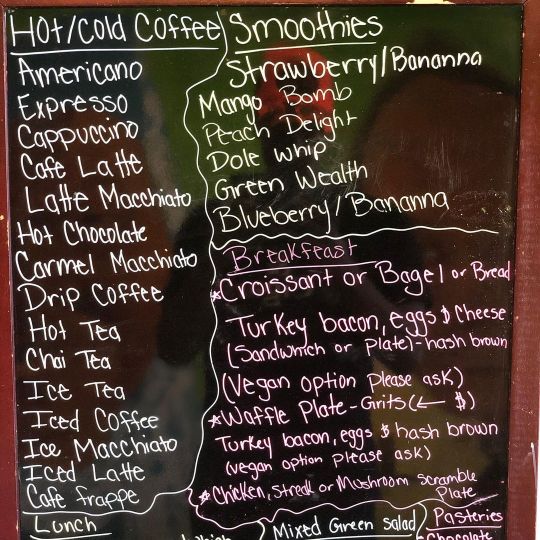 Hot/Cold Coffee
Americano
Expresso
Cappuccino
Cafe Latte
Latte Macchiato
Hot Chocolate
Carmel Macchiato
Drip Coffee
Hot Tea
Chai Tea
Ice Tea
Iced Coffee
Ice Macchiato
Iced Latte
Cafe frappe
Smoothies
Strawberry/Bananna
Mango Bomb
Peach Delight
Dole Whip
Green Wealth
Blueberry/Bananna
Breakfeast
*Croissant or Bagel or Bread
Turkey bacon, eggs $ Cheese
(Sandwhich or plate)-hash brown
(Vegan option please ask)
*Waffle Plate-Grits(← $)
Turkey bacon, eggs $ hash brown
(vegan option please ask)
*Chicken, Streak or Mushroom scramble
Plate
Lunch
Mixed Green salad
Pasteries
Chocolate